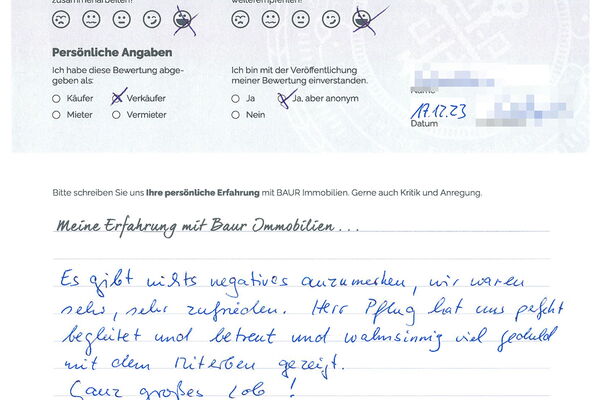 zusammenarbeiten?
weiterempfehlen?
Persönliche Angaben
Ich habe diese Bewertung abge-
geben als:
Käufer
Verkäufer
Mieter
Vermieter
Ich bin mit der Veröffentlichung
meiner Bewertung einverstanden.
Ja
Ja, aber anonym
Nein
Name
17.12.23
Datum
Bitte schreiben Sie uns Ihre persönliche Erfahrung mit BAUR Immobilien. Gerne auch Kritik und Anregung.
Meine Erfahrung mit Baur Immobilien...
Es gibt nichts negatives anzumerken, wir waren
sehr, sehr zufrieden. Herr Pflug hat uns perfekt
begleitet und betreut und wahnsinnig viel geduld
mit dem Miterben gezeigt.
Ganz großes Lob!